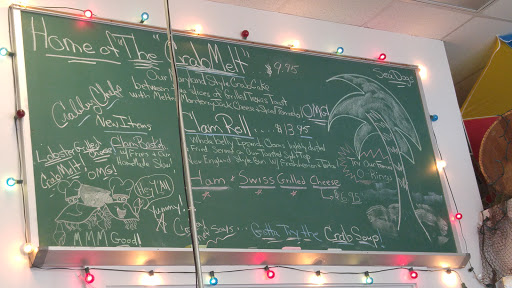 Home of "The" "Crab Melt" $9.95
Sea Dogs
Our Maryland Style Crab Cake
between two slices of Grilled Texas Toast
with Melted Monterey Jack Cheese Tomato
OMG!
Crabby Chabs
New Items
Clam Roll... $13.95
Whole belly Ipswich Clams lightly dusted
Fried Served on Our Toasted Split Top
New England Style Bun
Lobster Grilled Cheese
Clam Basket
w/ Fries & Our
Homemade Slaw
Crab Melt
OMG!
Try Our
O-Rings
Ham & Swiss Grilled Cheese
$6.95
Hey Y'All
Yummy!
MMM Good!
Says... Gotta Try the Crab Soup!